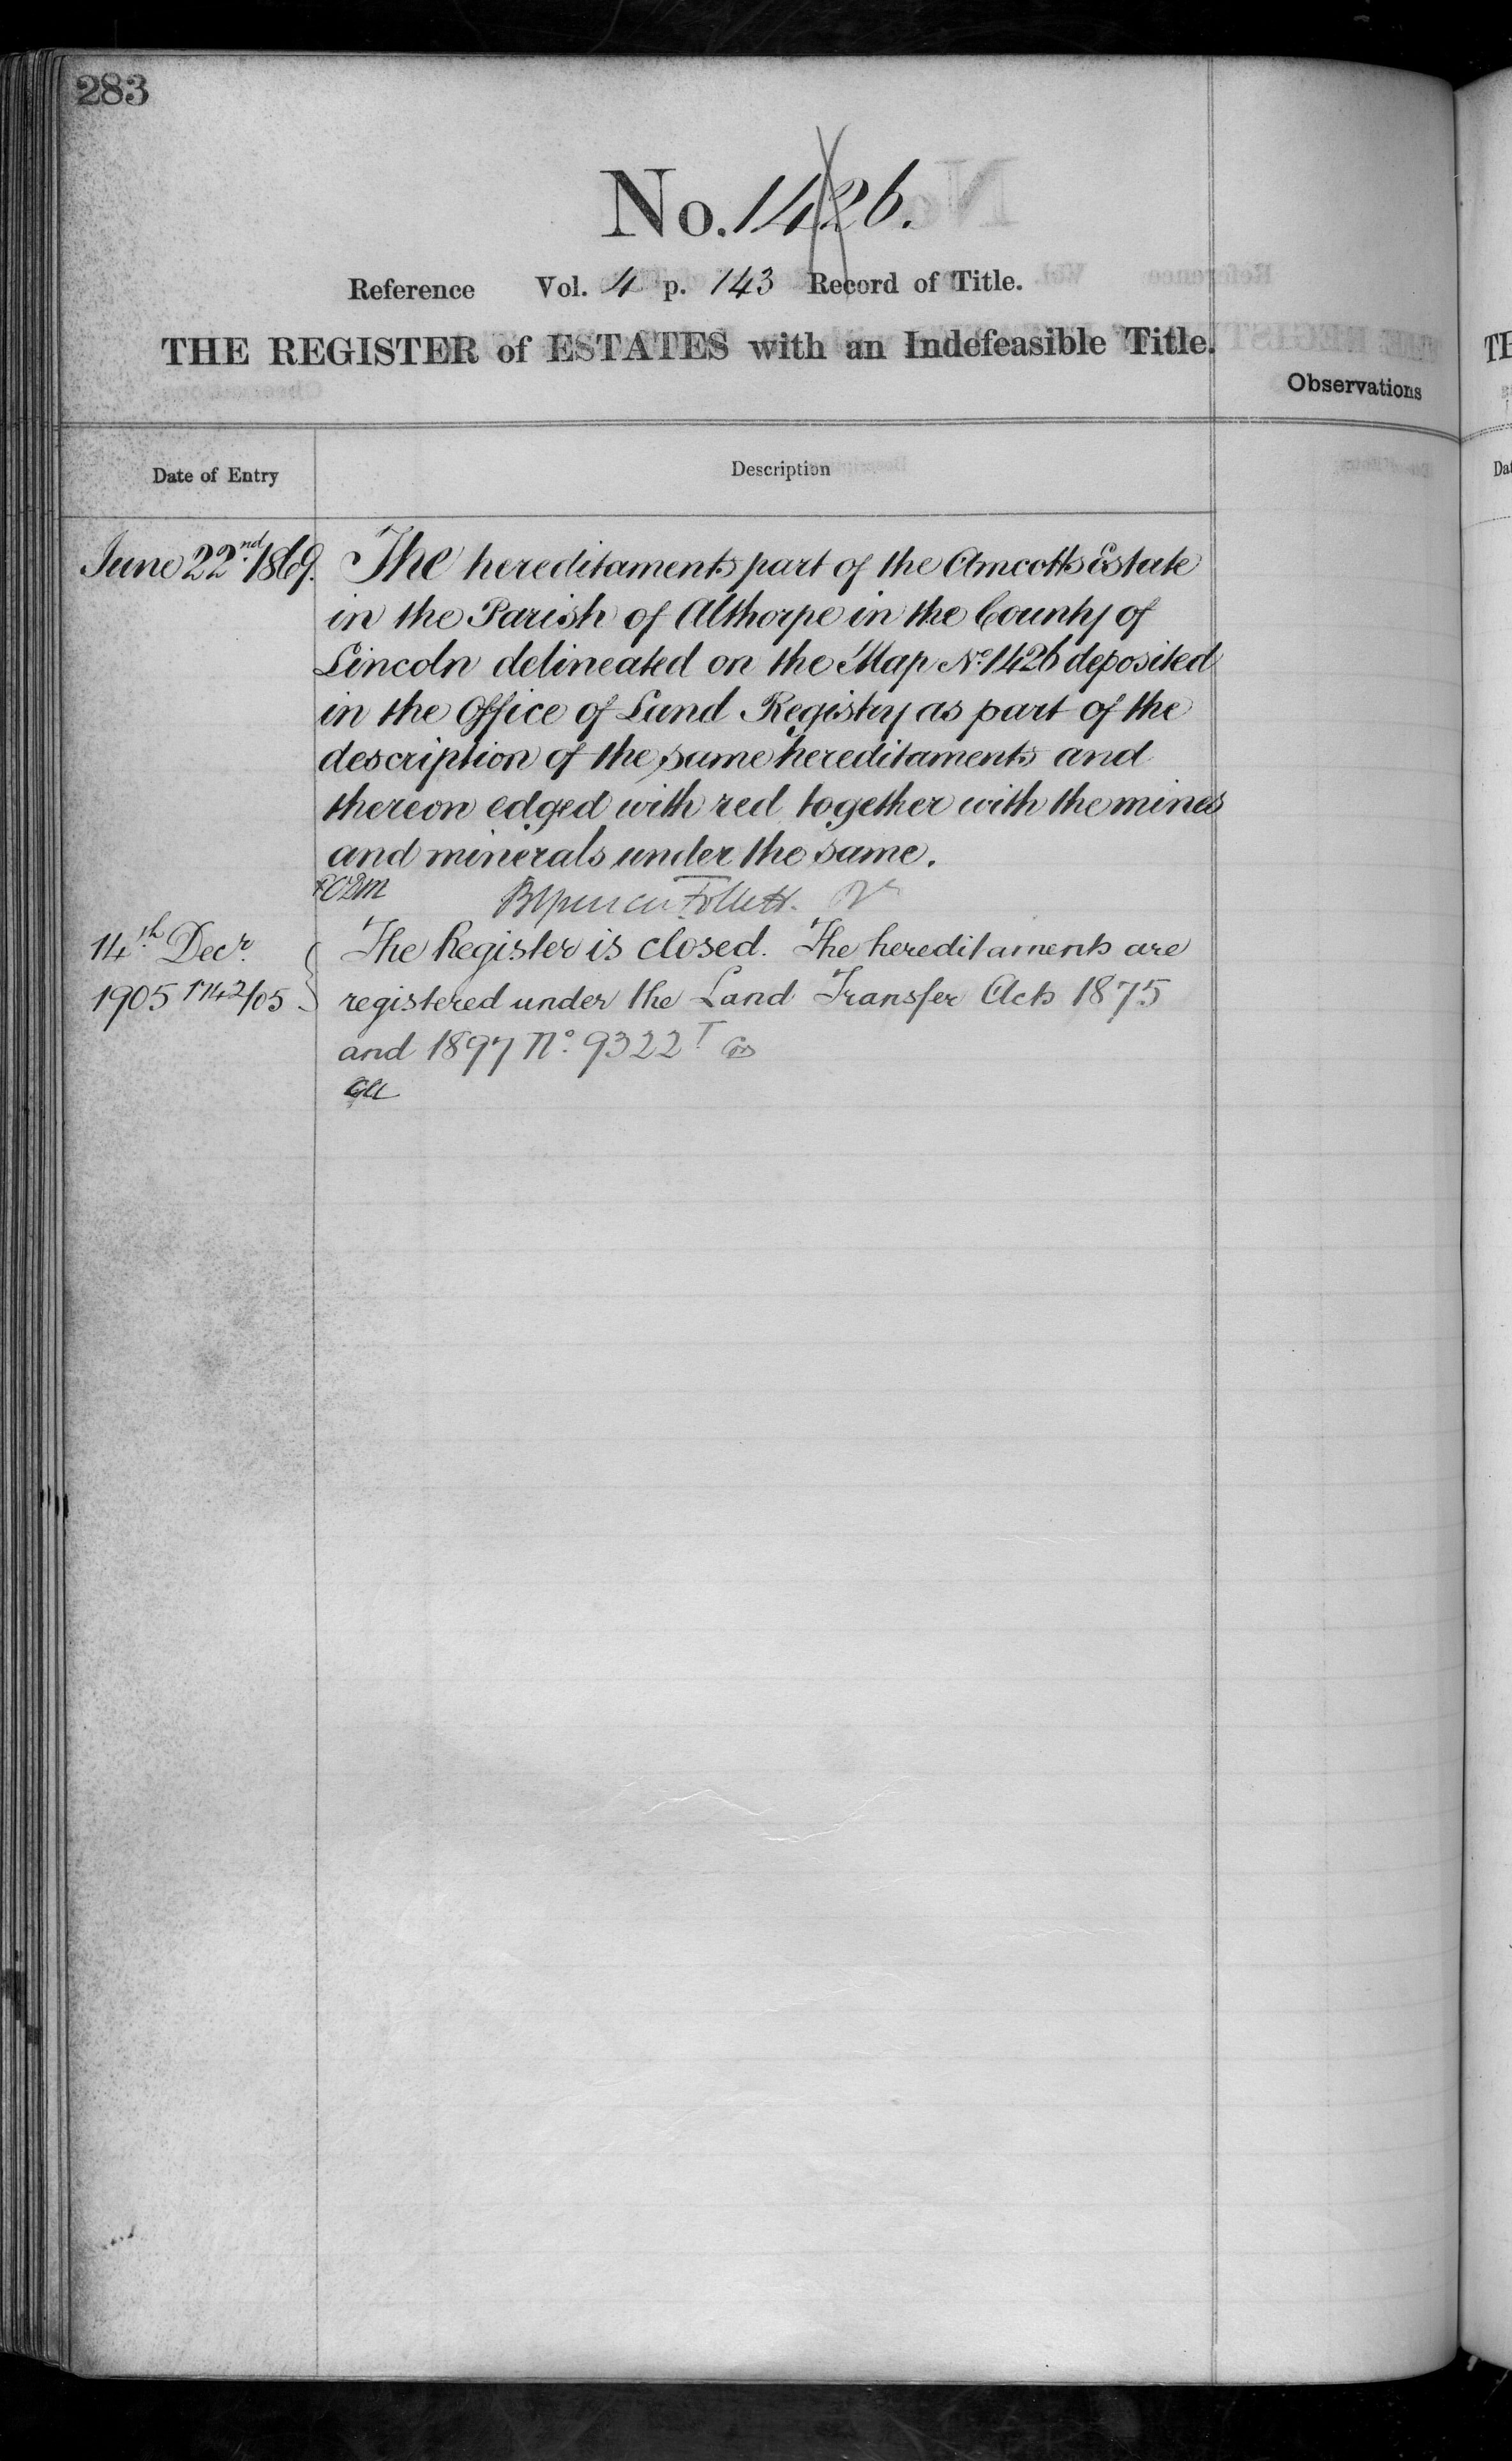 283
No. 1426.
Reference Vol. 4 p. 143 Record of Title.
THE REGISTER of ESTATES with an Indefeasible Title.
Observations
Date of Entry
Description
June 22nd 1869. The hereditaments part of the Amcotts Estate
in the Parish of Althorpe in the County of
Lincoln delineated on the Map No. 1426 deposited
in the Office of Land Registry as part of the
description of the same hereditaments and
thereon edged with red together with the mines
and minerals under the same.
Follett.
14th Decr. The Register is closed. The hereditaments are
1905 registered under the Land Transfer Acts 1875
and 1897 No. 9322